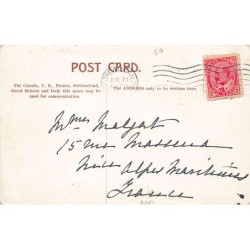 POST CARD.
For Canada, U. S., France, Switzerland,
Great Britain and Italy this space may be
used for communication.
The ADDRESS only to be written here.
Mmes Malgat
15 rue Massena
Nice Alpes Maritimes
France